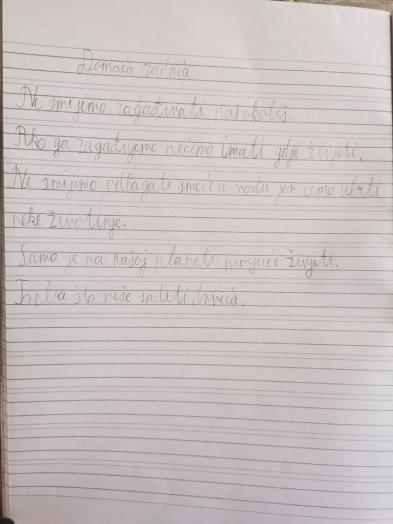 Domaća zadaća
Ne smijemo zagađivati naš okoliš.
Ako ga zagađujemo nećemo imati gdje živjeti.
Ne smijemo odlagati smeće u vodu jer ćemo
neke životinje.
Samo je na našoj planeti moguće živjeti.
Treba što više saditi drveća.